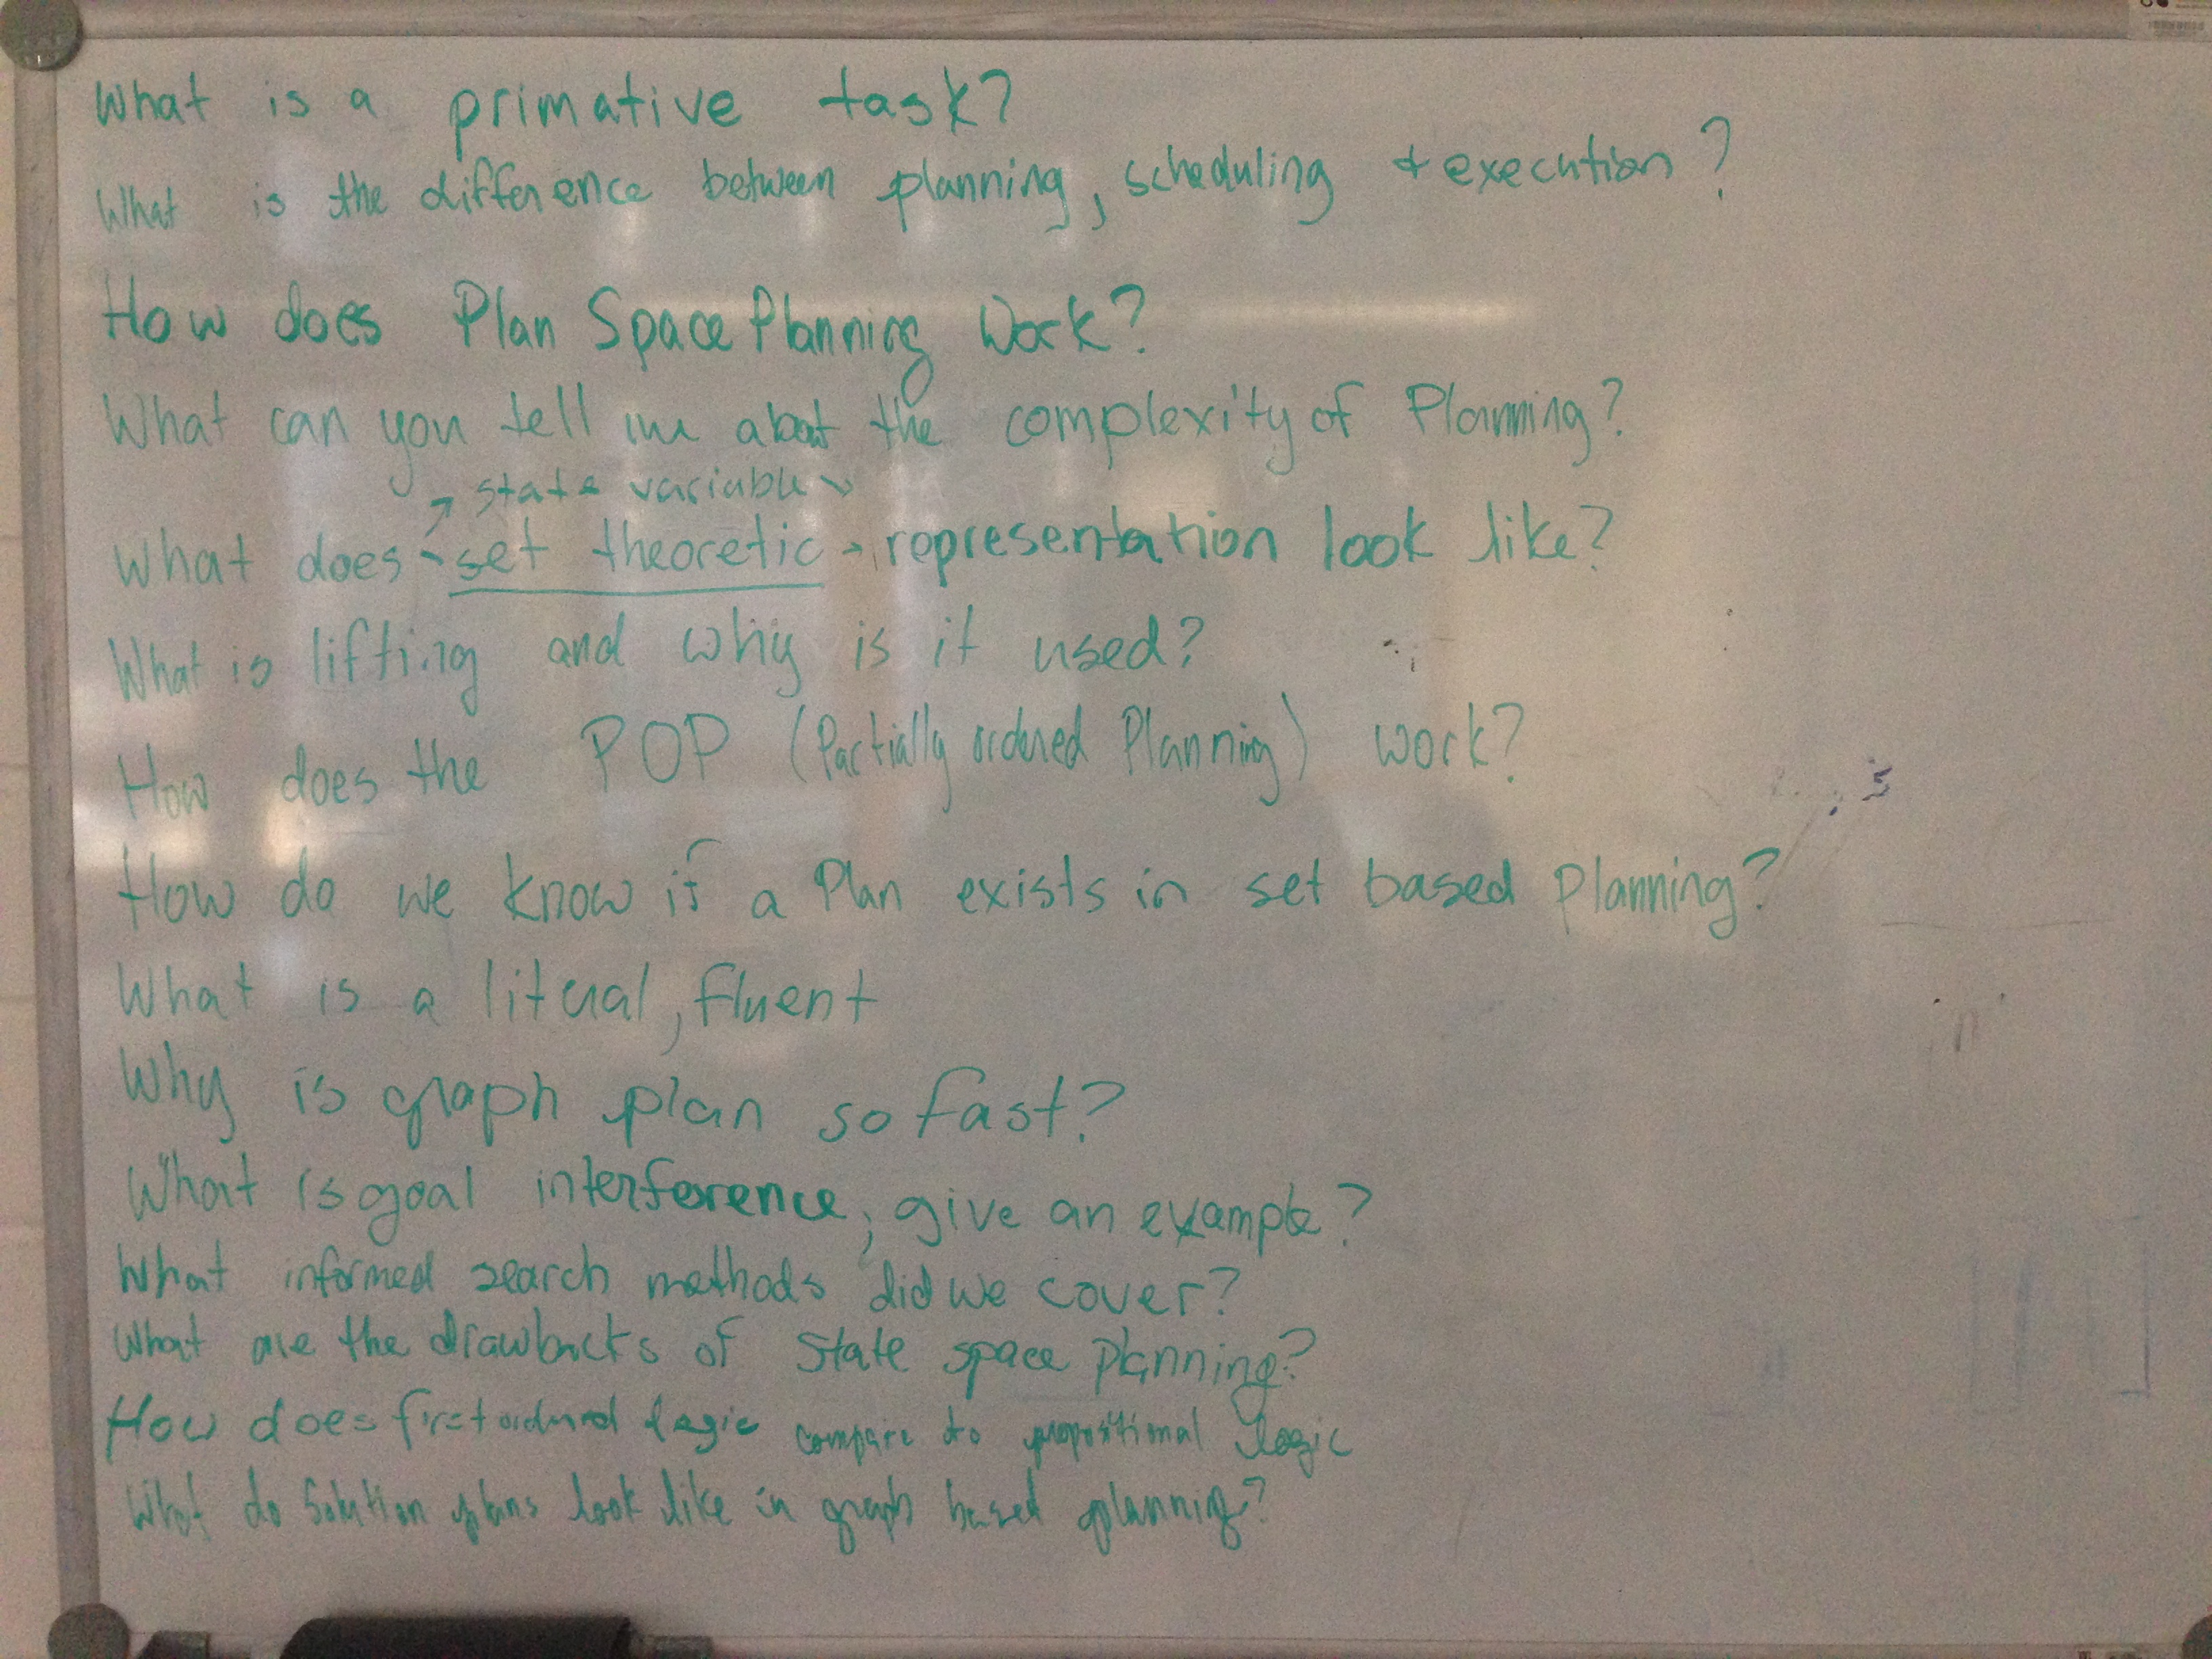 What is a primative task?
What is the difference between planning, scheduling + execution?
How does Plan Space Planning Work?
What can you tell me about the complexity of Planning?
state variable
What does set theoretic representation look like?
What is lifting and why is it used?
How does the POP (Partially ordered Planning) work?
How do we know if a Plan exists in set based Planning?
What is a litual, fluent
Why is graph plan so fast?
What is goal interference, give an example?
What informed search methods did we cover?
What are the drawbacks of State space planning?
How does first ordered logic compare to propositional logic
What do Solution plans look like in graph based planning?